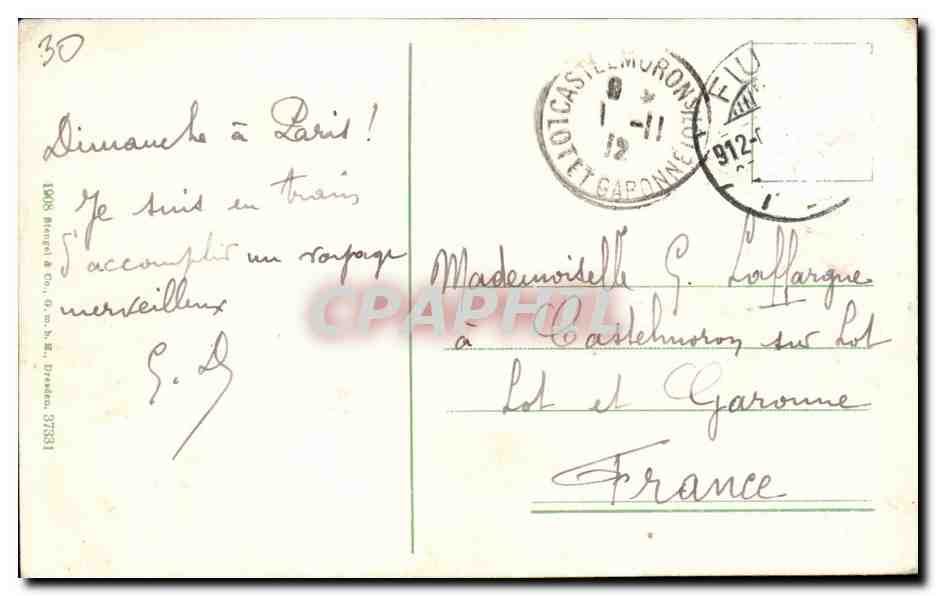 30
Dimanche à Paris !
Je suis en train
d'accomplir un voyage
merveilleux
G. D
1908 Stengel & Co., G. m. b. H., Dresden. 37331
CASTELMORON S LOT
LOT ET GARONNE
1 -11
12
FIU
912
Mademoiselle G. Laffargue
à Castelmoron sur Lot
Lot et Garonne
France
CPAPHIL